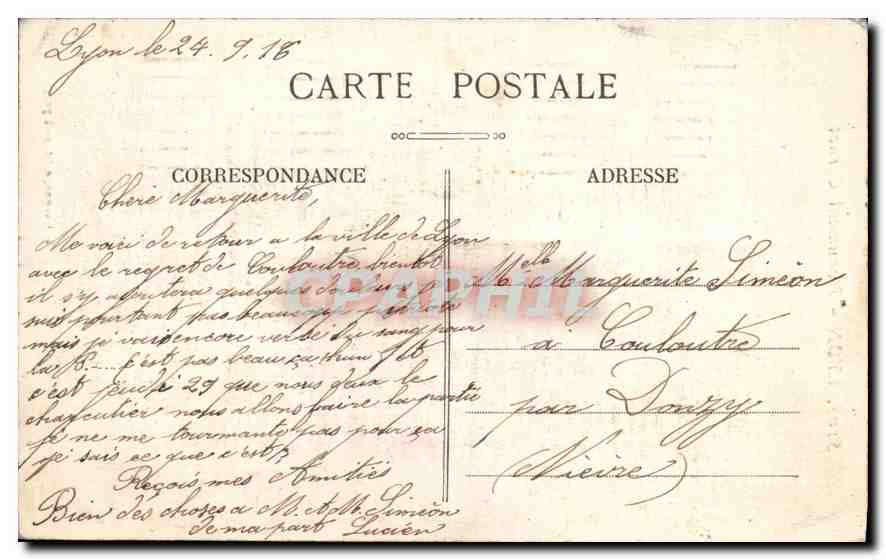 Lyon le 24. 9. 18
CARTE POSTALE
CORRESPONDANCE
Chère Marguerite,
Me voici de retour a la ville de Lyon
avec le regret de Couloutre bientot
il s'y ajoutera quelques
suis pourtant pas beaucoup
mais je vais encore verser du sang pour
la P..... c'est pas beau ça hum
c'est jeudi 29 que nous deux le
charcutier nous allons faire la partie
je ne me tourmente pas pour ça
je sais ce que c'est?
Reçois mes Amitiés
Bien des choses a M. et M. Siméon
de ma part Lucien
ADRESSE
Melle Marguerite Siméon
a Couloutre
par Donzy
(Nièvre)
CPAPHIL